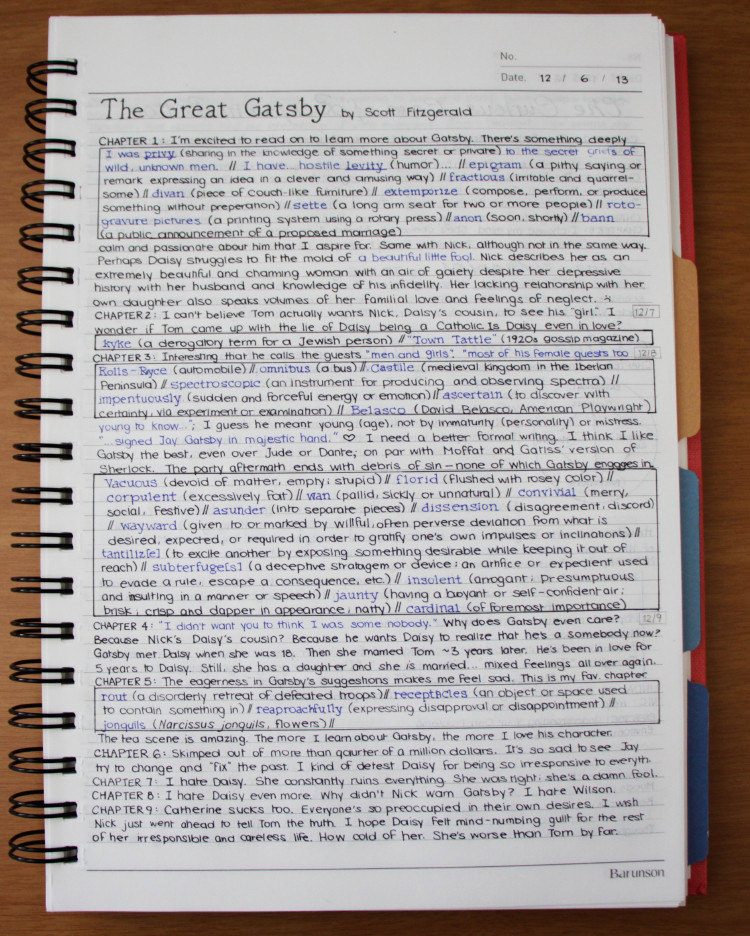 No.
Date. 12 / 6 / 13
The Great Gatsby by Scott Fitzgerald
CHAPTER 1: I'm excited to read on to learn more about Gatsby. There's something deeply
I was privy (sharing in the knowledge of something secret or private) to the secret griefs of
wild, unknown men. // I have... hostile levity (humor)... // epigram (a pithy saying or
remark expressing an idea in a clever and amusing way) // fractious (irritable and quarrel-
some) // divan (piece of couch-like furniture) // extemporize (compose, perform, or produce
something without preperation) // sette (a long arm seat for two or more people) // roto-
gravure pictures (a printing system using a rotary press) // anon (soon, shortly) // bann
(a public announcement of a proposed marriage)
calm and passionate about him that I aspire for. Same with Nick, although not in the same way.
Perhaps Daisy struggles to fit the mold of a beautiful little fool. Nick describes her as an
extremely beautiful and charming woman with an air of gaiety despite her depressive
history with her husband and knowledge of his infidelity. Her lacking relationship with her
own daughter also speaks volumes of her familial love and feelings of neglect. :\
CHAPTER 2: I can't believe Tom actually wants Nick, Daisy's cousin, to see his "girl". I 12/7
wonder if Tom came up with the lie of Daisy being a Catholic. Is Daisy even in love?
kyke (a derogatory term for a Jewish person) // "Town Tattle" (1920s gossip magazine)
CHAPTER 3: Interesting that he calls the guests "men and girls". "most of his female guests too 12/8
Rolls-Royce (automobile) // omnibus (a bus) // Castile (medieval kingdom in the Iberian
Peninsula) // spectroscopic (an instrument for producing and observing spectra) //
impentuously (sudden and forceful energy or emotion) // ascertain (to discover with
certainty, via experiment or examination) // Belasco (David Belasco, American Playwright)
young to know..."; I guess he meant young (age), not by immaturity (personality) or mistress.
"...signed Jay Gatsby in majestic hand." ♡ I need a better formal writing. I think I like
Gatsby the best, even over Jude or Dante; on par with Moffat and Gatiss' version of
Sherlock. The party aftermath ends with debris of sin — none of which Gatsby engages in.
Vacuous (devoid of matter, empty; stupid) // florid (flushed with rosey color) //
corpulent (excessively fat) // wan (pallid, sickly or unnatural) // convivial (merry,
social, festive) // asunder (into separate pieces) // dissension (disagreement, discord)
// wayward (given to or marked by willful, often perverse deviation from what is
desired, expected, or required in order to gratify one's own impulses or inclinations) //
tantiliz[e] (to excite another by exposing something desirable while keeping it out of
reach) // subterfuge[s] (a deceptive stratagem or device; an artifice or expedient used
to evade a rule, escape a consequence, etc.) // insolent (arrogant; presumptuous
and insulting in a manner or speech) // jaunty (having a buoyant or self-confident air;
brisk; crisp and dapper in appearance, natty) // cardinal (of foremost importance)
CHAPTER 4: "I didn't want you to think I was some nobody." Why does Gatsby even care? 12/9
Because Nick's Daisy's cousin? Because he wants Daisy to realize that he's a somebody now?
Gatsby met Daisy when she was 18. Then she married Tom ~3 years later. He's been in love for
5 years to Daisy. Still, she has a daughter and she is married... mixed feelings all over again.
CHAPTER 5: The eagerness in Gatsby's suggestions makes me feel sad. This is my fav. chapter
rout (a disorderly retreat of defeated troops) // receptacles (an object or space used
to contain something in) // reaproachfully (expressing disapproval or disappointment) //
jonquils (Narcissus jonquils, flowers) //
The tea scene is amazing. The more I learn about Gatsby, the more I love his character.
CHAPTER 6: Skimped out of more than qaurter of a million dollars. It's so sad to see Jay
try to change and "fix" the past. I kind of detest Daisy for being so irresponsive to everyth.
CHAPTER 7: I hate Daisy. She constantly ruins everything. She was right; she's a damn fool.
CHAPTER 8: I hate Daisy even more. Why didn't Nick warn Gatsby? I hate Wilson.
CHAPTER 9: Catherine sucks too. Everyone's so preoccupied in their own desires. I wish
Nick just went ahead to tell Tom the truth. I hope Daisy felt mind-numbing guilt for the rest
of her irresponsible and careless life. How cold of her. She's worse than Tom by far.
Barunson